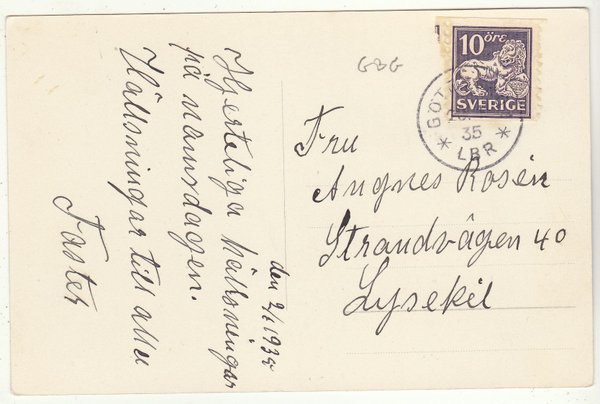 Hjerteliga hällsningar
på namnsdagen.
Hällsningar till alla
Faster
den 21 1935
GBG
10 ÖRE
SVERIGE
35
LBR
Fru
Augnes Rosén
Strandvägen 40
Lysekil